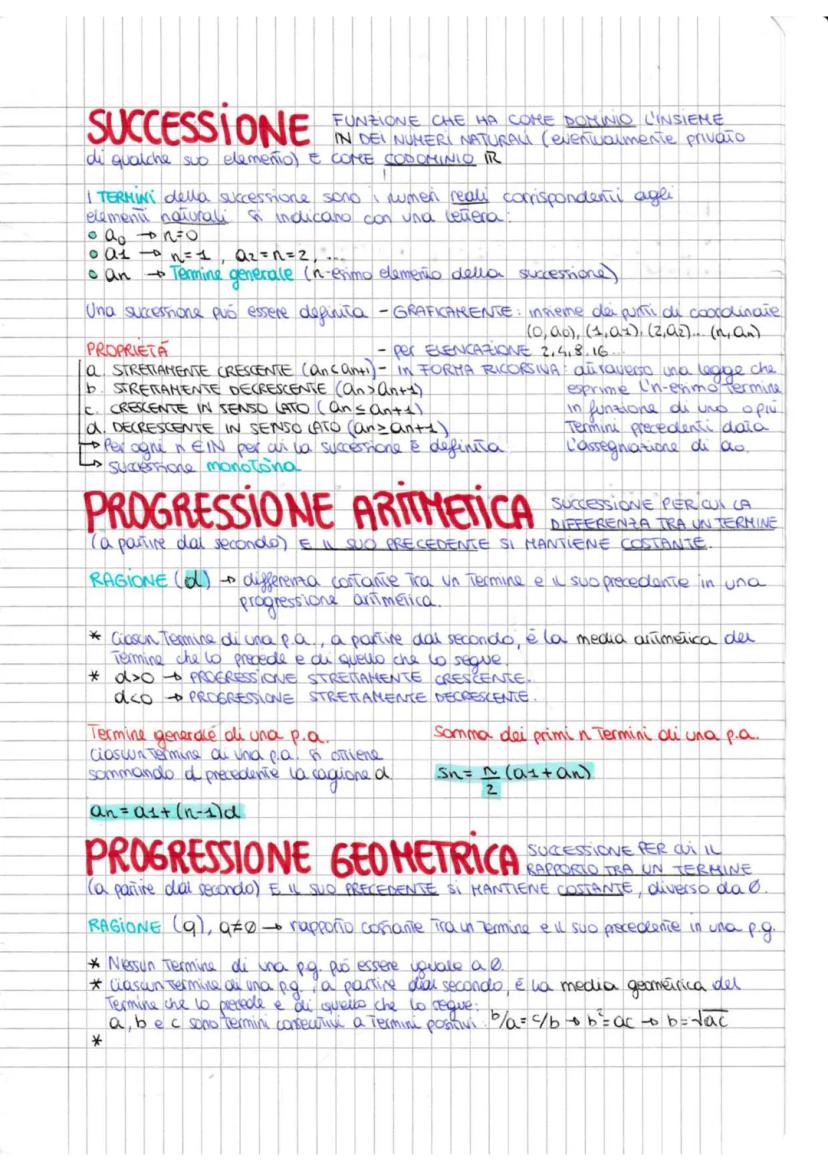 SUCCESSIONE FUNZIONE CHE HA COME DOMINIO L'INSIEME
IN DEI NUMERI NATURALI (eventualmente privato
di qualche suo elemento) E COME CODOMINIO IR
I TERMINI della successione sono i numeri reali corrispondenti agli
elementi naturali. Si indicano con una lettera:
• a0 → n=0
• a1 → n=1, a2=n=2, ...
• an → Termine generale (n-esimo elemento della successione)
Una successione può essere definita - GRAFICAMENTE: insieme dei punti di coordinate
(0,a0), (1,a1), (2,a2)... (n,an)
PROPRIETÁ - per ELENCAZIONE 2,4,8,16...
a. STRETTAMENTE CRESCENTE (an<an+1) - IN FORMA RICORSIVA: attraverso una legge che
b. STRETTAMENTE DECRESCENTE (an>an+1) esprime l'n-esimo termine
c. CRESCENTE IN SENSO LATO (an≤an+1) in funzione di uno o più
d. DECRESCENTE IN SENSO LATO (an≥an+1) Termini precedenti data
→ Per ogni n EIN per cui la successione è definita l'assegnazione di a0.
→ successione monotòna
PROGRESSIONE ARITMETICA SUCCESSIONE PER CUI LA
DIFFERENZA TRA UN TERMINE
(a partire dal secondo) E IL SUO PRECEDENTE SI MANTIENE COSTANTE.
RAGIONE (d) → differenza costante tra un termine e il suo precedente in una
progressione aritmetica.
* Ciascun Termine di una p.a., a partire dal secondo, è la media aritmetica del
Termine che lo precede e di quello che lo segue.
* d>0 → PROGRESSIONE STRETTAMENTE CRESCENTE.
d<0 → PROGRESSIONE STRETTAMENTE DECRESCENTE.
Termine generale di una p.a. Somma dei primi n Termini di una p.a.
ciascun termine di una p.a. si ottiene
sommando al precedente la ragione d Sn= n/2 (a1+an)
an=a1+(n-1)d
PROGRESSIONE GEOMETRICA SUCCESSIONE PER CUI IL
RAPPORTO TRA UN TERMINE
(a partire dal secondo) E IL SUO PRECEDENTE SI MANTIENE COSTANTE, diverso da 0.
RAGIONE (q), q≠0 → rapporto costante tra un termine e il suo precedente in una p.g.
* Nessun Termine di una p.g. può essere uguale a 0.
* Ciascun termine di una p.g., a partire dal secondo, è la media geometrica del
Termine che lo precede e di quello che lo segue:
a, b e c sono Termini consecutivi a Termini positivi: b/a=c/b → b²=ac → b=√ac
*